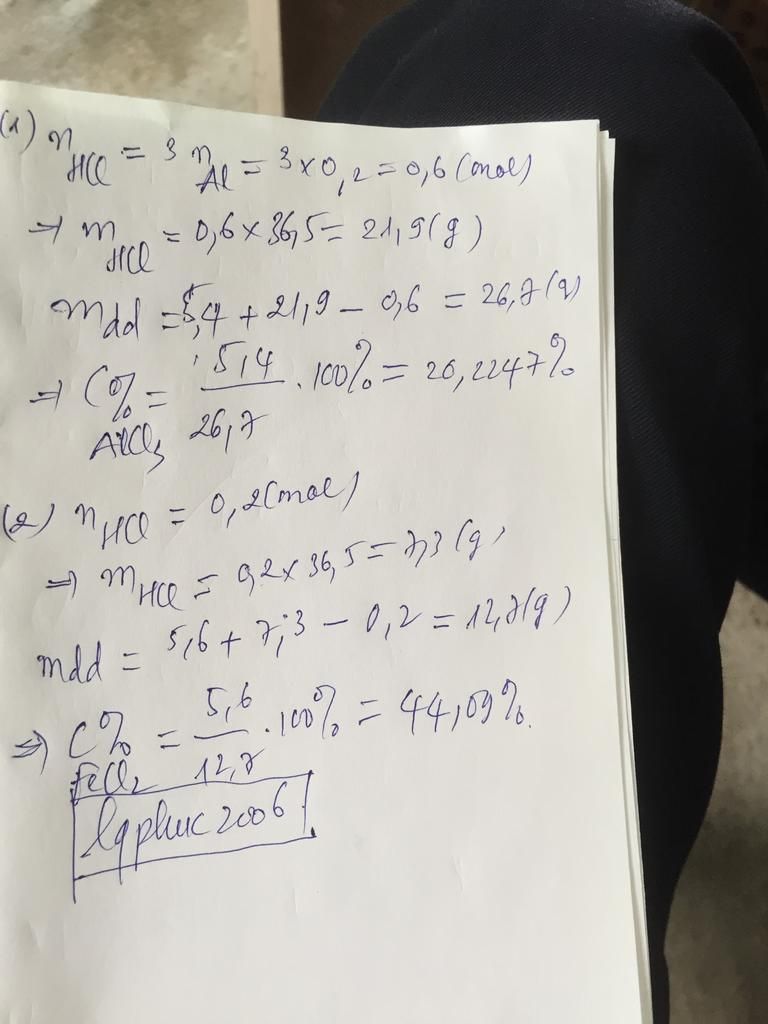 (1) n HCl = 3 n Al = 3 x 0,2 = 0,6 (mol)
=> m HCl = 0,6 x 36,5 = 21,9 (g)
mdd = 5,4 + 21,9 - 0,6 = 26,7 (g)
=> C% AlCl3 = 5,4 / 26,7 . 100% = 20,2247%
(2) n HCl = 0,2 (mol)
=> m HCl = 0,2 x 36,5 = 7,3 (g)
mdd = 5,6 + 7,3 - 0,2 = 12,7 (g)
=> C% FeCl2 = 5,6 / 12,7 . 100% = 44,09%.
lqphuc2006